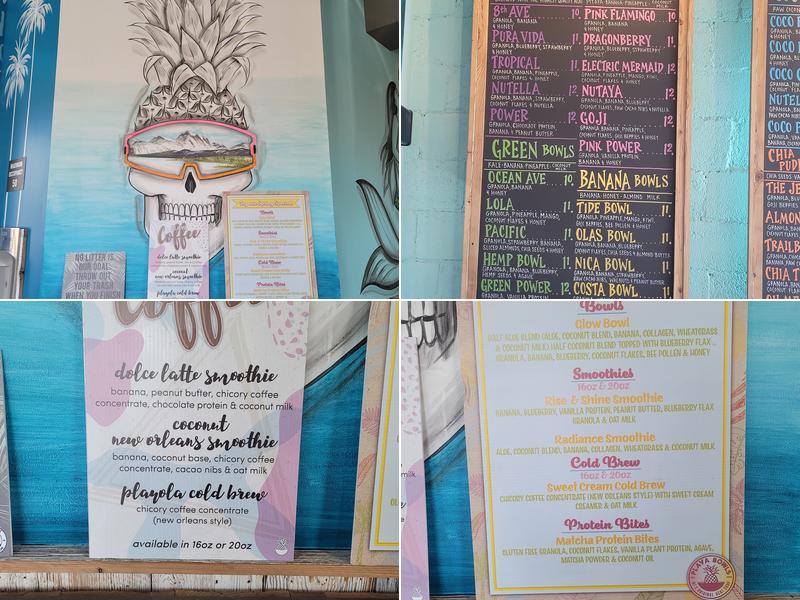 Coffee
dolce latte smoothie
coconut
new orleans smoothie
playola cold brew
NO LITTER IS
OUR GOAL,
THROW OUT
YOUR TRASH
WHEN YOU FINISH
50
Bowls
Smoothies
Cold Brew
Protein Bites
8th AVE 10.
GRANOLA, BANANA
& HONEY
PURA VIDA 11.
GRANOLA, BLUEBERRY, STRAWBERRY
& HONEY
TROPICAL 11.
GRANOLA, BANANA, PINEAPPLE,
COCONUT FLAKES & HONEY
NUTELLA 12.
GRANOLA, BANANA, STRAWBERRY,
COCONUT FLAKES & NUTELLA
POWER 12.
GRANOLA, CHOCOLATE PROTEIN,
BANANA & PEANUT BUTTER
GREEN BOWLS
KALE·BANANA·PINEAPPLE·COCONUT
OCEAN AVE. 10.
GRANOLA, BANANA
& HONEY
LOLA 11.
GRANOLA, PINEAPPLE, MANGO,
COCONUT FLAKES & HONEY
PACIFIC 11.
GRANOLA, STRAWBERRY, BANANA,
HEMP BOWL 11.
GREEN POWER 12.
GRANOLA, VANILLA PROTEIN,
PINK FLAMINGO 10.
GRANOLA, BANANA
& HONEY
DRAGONBERRY 11.
ELECTRIC MERMAID 12
NUTAYA 12
GOJI 11.
GRANOLA, BANANA, PINEAPPLE,
COCONUT FLAKES, GOJI BERRIES & HONEY
PINK POWER 12
GRANOLA, VANILLA PROTEIN,
BANANA & HONEY
BANANA BOWLS
BANANA·HONEY·ALMOND MILK
TIDE BOWL 11.
GRANOLA, PINEAPPLE, MANGO, KIWI,
GOJI BERRIES, BEE POLLEN & HONEY
OLAS BOWL 11.
GRANOLA, BANANA, BLUEBERRY,
NICA BOWL 11.
COSTA BOWL 11.
COCO
COCO
COCO
NUTEL
COCO P
CHIA
PUD
THE JE
ALMON
TRAILB
CHIA T
Coffee
dolce latte smoothie
banana, peanut butter, chicory coffee
concentrate, chocolate protein & coconut milk
coconut
new orleans smoothie
banana, coconut base, chicory coffee
concentrate, cacao nibs & oat milk
playola cold brew
chicory coffee concentrate
(new orleans style)
available in 16oz or 20oz
Bowls
Glow Bowl
HALF ALOE BLEND (ALOE, COCONUT BLEND, BANANA, COLLAGEN, WHEATGRASS
& COCONUT MILK) HALF COCONUT BLEND TOPPED WITH BLUEBERRY FLAX
GRANOLA, BANANA, BLUEBERRY, COCONUT FLAKES, BEE POLLEN & HONEY
Smoothies
16oz & 20oz
Rise & Shine Smoothie
BANANA, BLUEBERRY, VANILLA PROTEIN, PEANUT BUTTER, BLUEBERRY FLAX
GRANOLA & OAT MILK
Radiance Smoothie
ALOE, COCONUT BLEND, BANANA, COLLAGEN, WHEATGRASS & COCONUT MILK
Cold Brew
16oz & 20oz
Sweet Cream Cold Brew
CHICORY COFFEE CONCENTRATE (NEW ORLEANS STYLE) WITH SWEET CREAM
CREAMER & OAT MILK
Protein Bites
Matcha Protein Bites
GLUTEN FREE GRANOLA, COCONUT FLAKES, VANILLA PLANT PROTEIN, AGAVE,
MATCHA POWDER & COCONUT OIL
PLAYA BOWLS